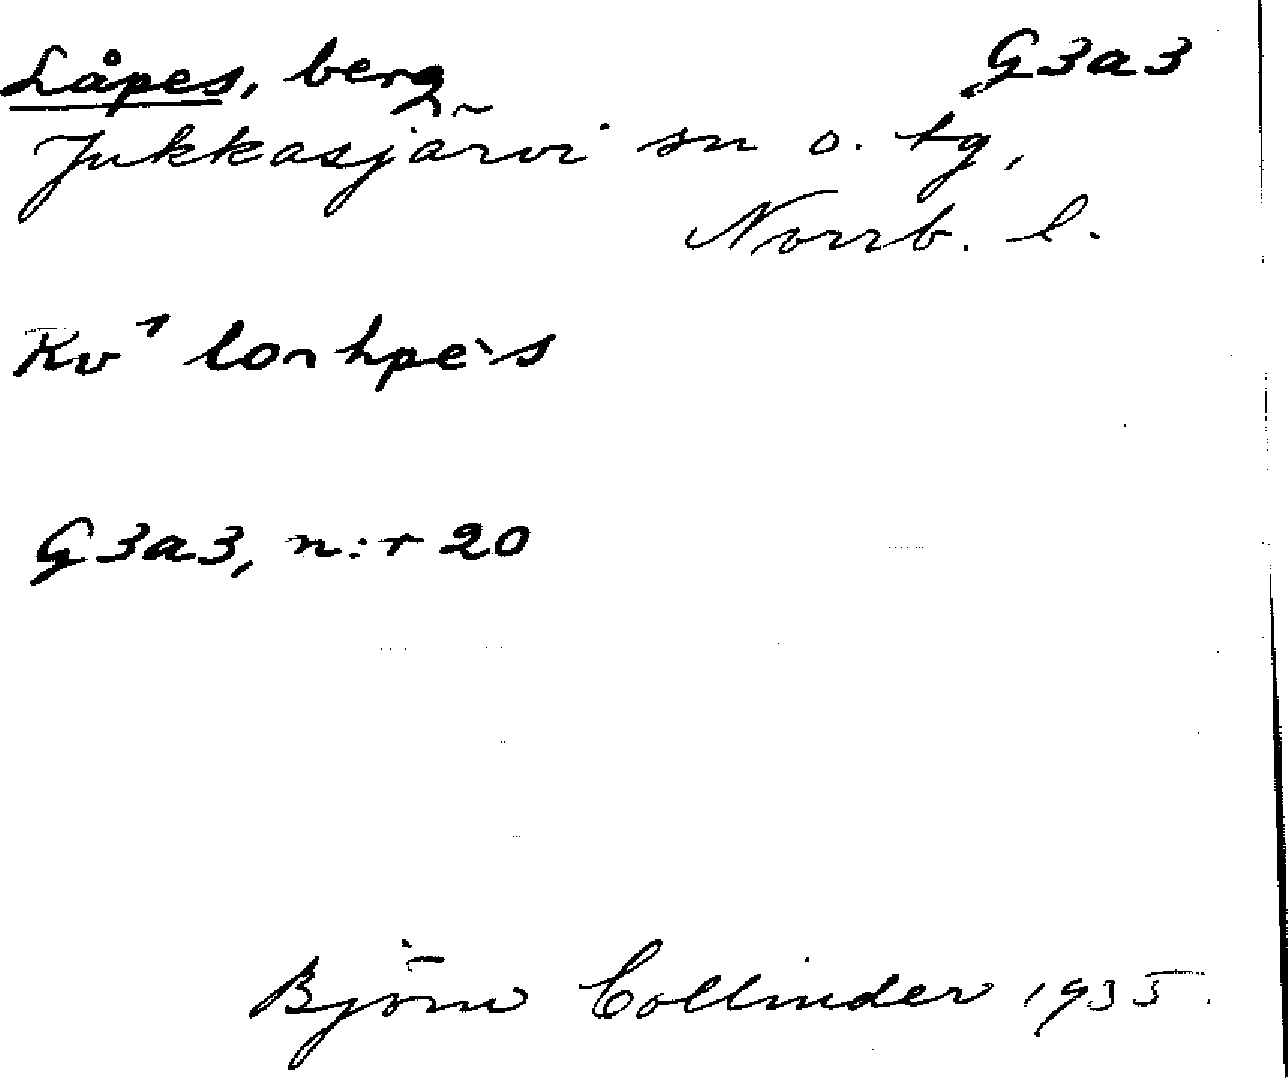 Låpes, berg G3a3
Jukkasjärvi sn o. tg,
Norrb. l.
Kv
G3a3, n:r 20
Björn Collinder 1935.